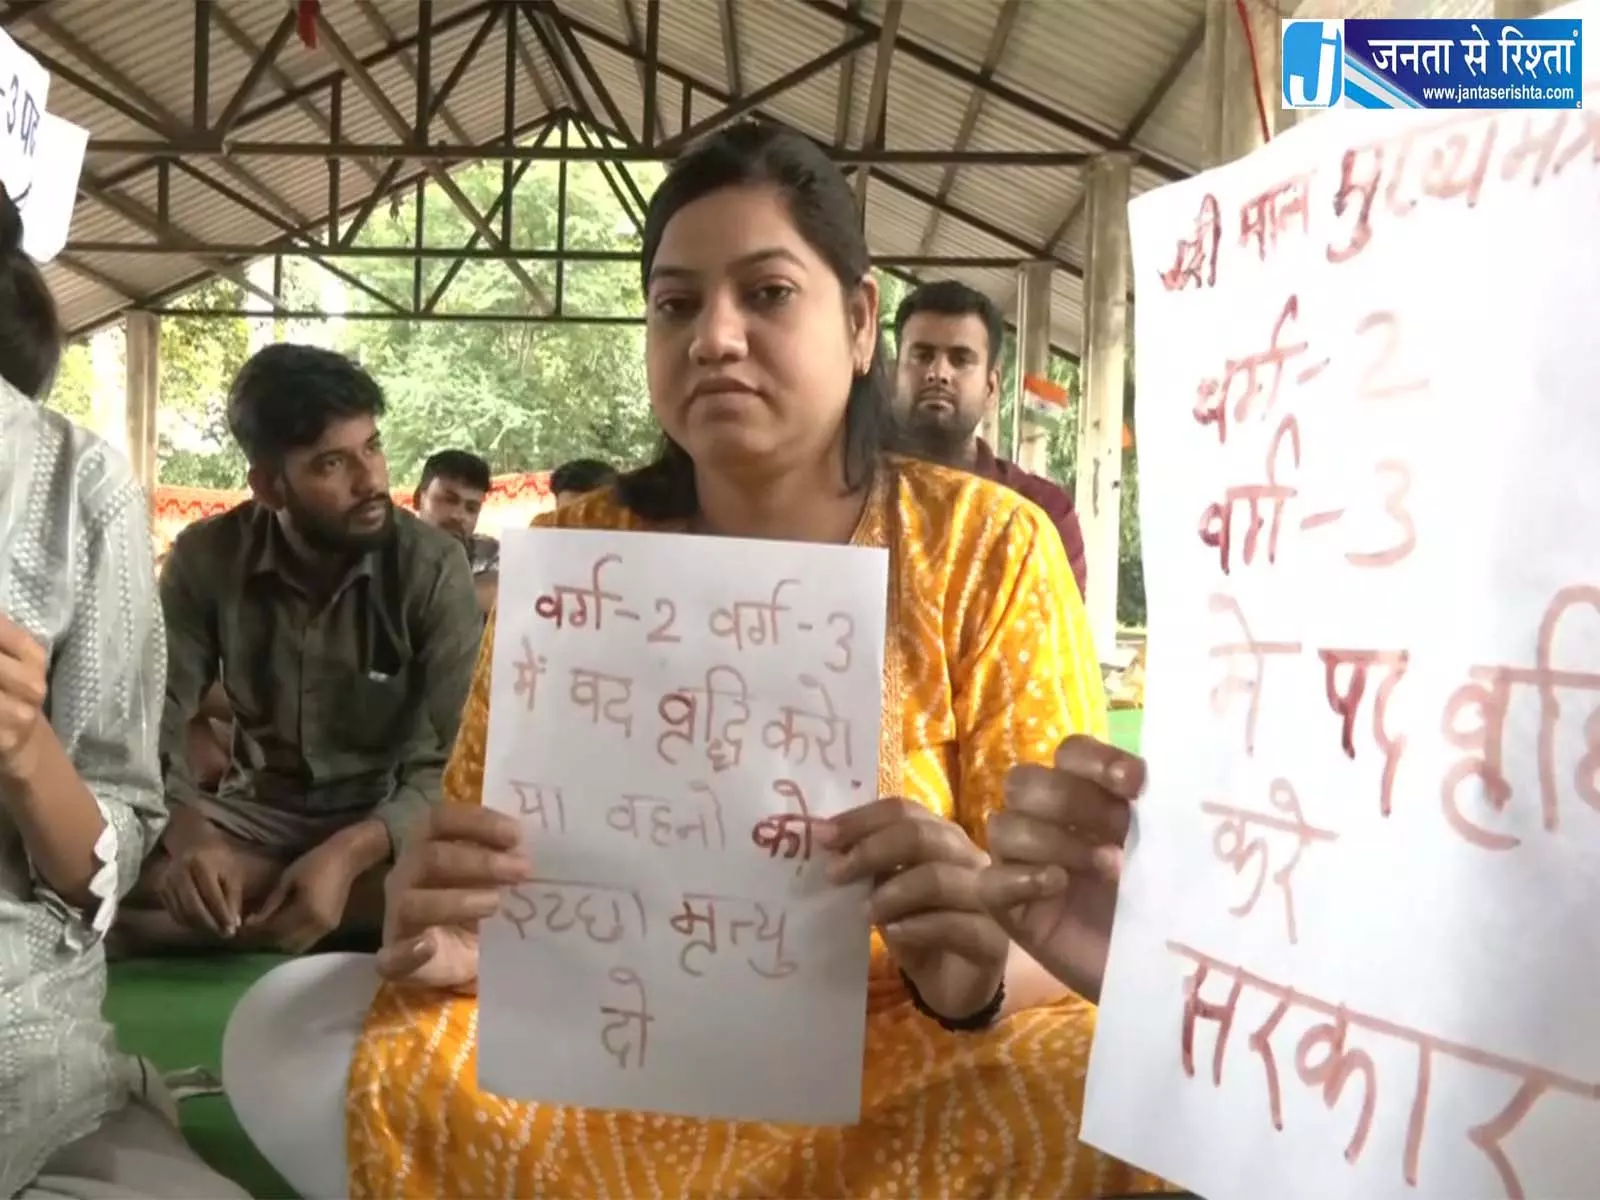 जनता से रिश्ता
www.jantaserishta.com
-3 पद
वर्ग-2 वर्ग-3
में पद वृद्धि करो
या बहनों को
इच्छा मृत्यु
दो
श्री मान मुख्यमंत्र
वर्ग-2
वर्ग-3
मे पद वृद्धि
करे
सरकार